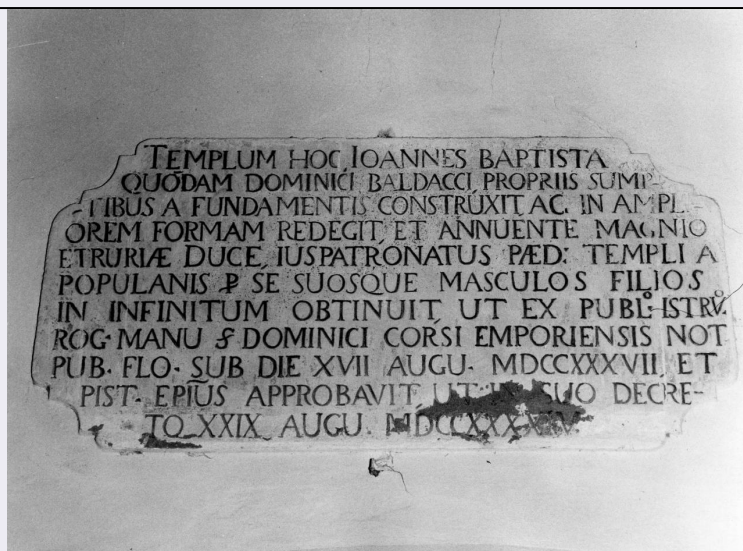 TEMPLUM HOC IOANNES BAPTISTA
QUODAM DOMINICI BALDACCI PROPRIIS SUMP-
-TIBUS A FUNDAMENTIS CONSTRUXIT AC IN AMPL-
OREM FORMAM REDEGIT ET ANNUENTE MAGNIO
ETRURIÆ DUCE IUSPATRONATUS PÆD: TEMPLI A
POPULANIS ꝑ SE SUOSQUE MASCULOS FILIOS
IN INFINITUM OBTINUIT UT EX PUBL° ISTRV°
ROG· MANU S DOMINICI CORSI EMPORIENSIS NOT
PUB· FLO· SUB DIE XVII AUGU· MDCCXXXVII ET
PIST· EPIUS APPROBAVIT UT SUO DECRE-
TO XXIX AUGU·